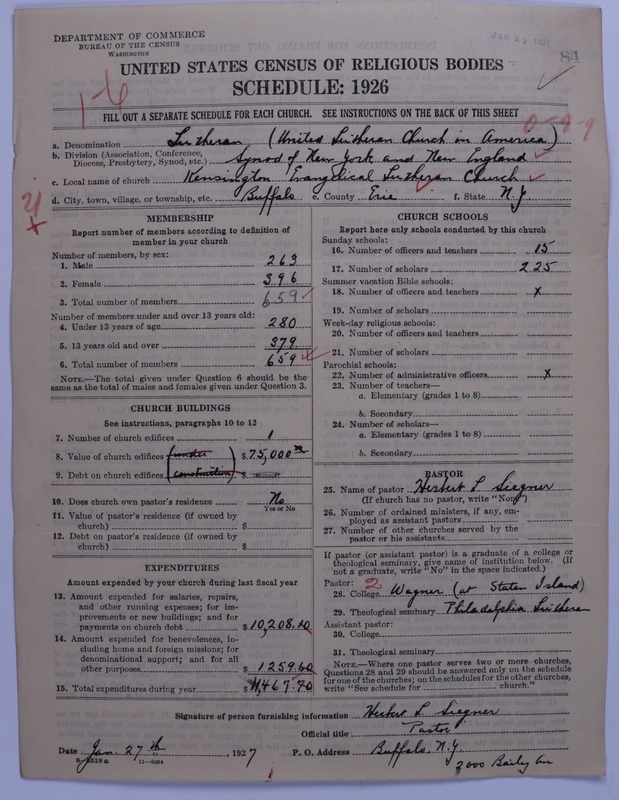 DEPARTMENT OF COMMERCE
BUREAU OF THE CENSUS
WASHINGTON
84
UNITED STATES CENSUS OF RELIGIOUS BODIES
SCHEDULE: 1926
FILL OUT A SEPARATE SCHEDULE FOR EACH CHURCH. SEE INSTRUCTIONS ON THE BACK OF THIS SHEET
a. Denomination Lutheran (United Lutheran Church in America)
b. Division (Association, Conference, Diocese, Presbytery, Synod, etc.) Synod of New York and New England
c. Local name of church Kensington Evangelical Lutheran Church
d. City, town, village, or township, etc. Buffalo e. County Erie f. State N.Y.
MEMBERSHIP
Report number of members according to definition of
member in your church
Number of members, by sex:
1. Male 263
2. Female 396
3. Total number of members 659
Number of members under and over 13 years old:
4. Under 13 years of age 280
5. 13 years old and over 379
6. Total number of members 659
NOTE.—The total given under Question 6 should be the
same as the total of males and females given under Question 3.
CHURCH BUILDINGS
See instructions, paragraphs 10 to 12
7. Number of church edifices 1
8. Value of church edifices (under $ 75,000
9. Debt on church edifices construction) $
10. Does church own pastor's residence No
Yes or No
11. Value of pastor's residence (if owned by
church) $
12. Debt on pastor's residence (if owned by
church) $
EXPENDITURES
Amount expended by your church during last fiscal year
13. Amount expended for salaries, repairs,
and other running expenses; for im-
provements or new buildings; and for
payments on church debt $ 10,208.10
14. Amount expended for benevolences, in-
cluding home and foreign missions; for
denominational support; and for all
other purposes $ 1259.60
15. Total expenditures during year $ 11,467.70
CHURCH SCHOOLS
Report here only schools conducted by this church
Sunday schools:
16. Number of officers and teachers 15
17. Number of scholars 225
Summer vacation Bible schools:
18. Number of officers and teachers x
19. Number of scholars
Week-day religious schools:
20. Number of officers and teachers
21. Number of scholars
Parochial schools:
22. Number of administrative officers x
23. Number of teachers—
a. Elementary (grades 1 to 8)
b. Secondary
24. Number of scholars—
a. Elementary (grades 1 to 8)
b. Secondary
PASTOR
25. Name of pastor Herbert L Siegner
(If church has no pastor, write "None")
26. Number of ordained ministers, if any, em-
ployed as assistant pastors
27. Number of other churches served by the
pastor or his assistants
If pastor (or assistant pastor) is a graduate of a college or
theological seminary, give name of institution below. (If
not a graduate, write "No" in the space indicated.)
Pastor: 2
28. College Wagner (at Staten Island)
29. Theological seminary Philadelphia Lutheran
Assistant pastor:
30. College
31. Theological seminary
NOTE.—Where one pastor serves two or more churches,
Questions 28 and 29 should be answered only on the schedule
for one of the churches; on the schedules for the other churches,
write "See schedule for church."
Signature of person furnishing information Herbert L Siegner
Official title Pastor
Date Jan. 27th, 1927 P. O. Address Buffalo, N.Y.
11—9054
3000 Bailey Ave